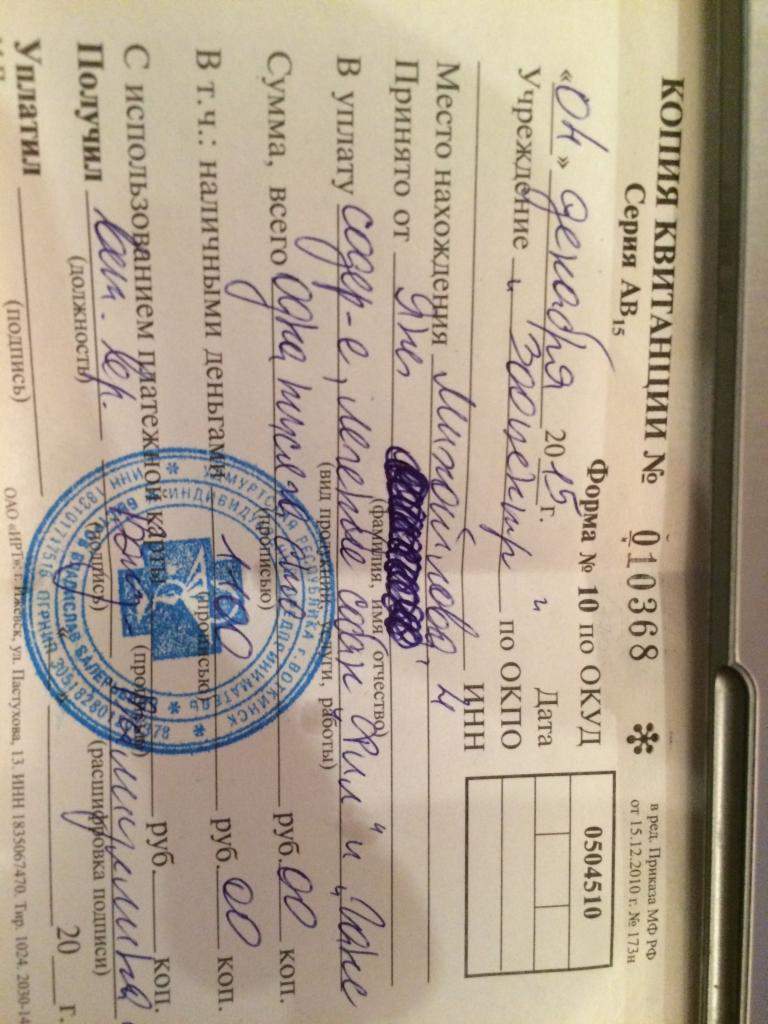 КОПИЯ КВИТАНЦИИ № 010368
Серия АВ15
в ред. Приказа МФ РФ
от 15.12.2010 г. № 173н
Форма № 10 по ОКУД 0504510
«04» декабря 2015 г. Дата
Учреждение "Зооцентр" по ОКПО
ИНН
Место нахождения Михайлова 4
Принято от Яны
(фамилия, имя, отчество)
В уплату содер-е, лечение собак "Фил" и "Ганс
(вид продукции, услуги, работы)
Сумма, всего одна тысяча руб. 00 коп.
(прописью)
В т.ч.: наличными деньгами руб. 00 коп.
(прописью)
С использованием платежной карты руб. коп.
(прописью)
Получил вет. вр.
(должность) (подпись) (расшифровка подписи)
Уплатил 20 г.
(подпись)
ОАО «ИРТ», г. Ижевск, ул. Пастухова, 13. ИНН 1835067470. Тир. 1024. 2030-14
УДМУРТСКАЯ РЕСПУБЛИКА г. ВОТКИНСК
ИНДИВИДУАЛЬНЫЙ ПРЕДПРИНИМАТЕЛЬ